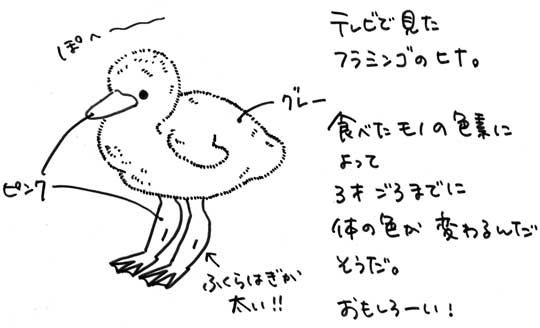 ぽへー
テレビで見た
フラミンゴのヒナ。
グレー
ピンク
ふくらはぎが
太い!!
食べたモノの色素に
よって
3才ごろまでに
体の色が変わるんだ
そうだ。
おもしろーい!